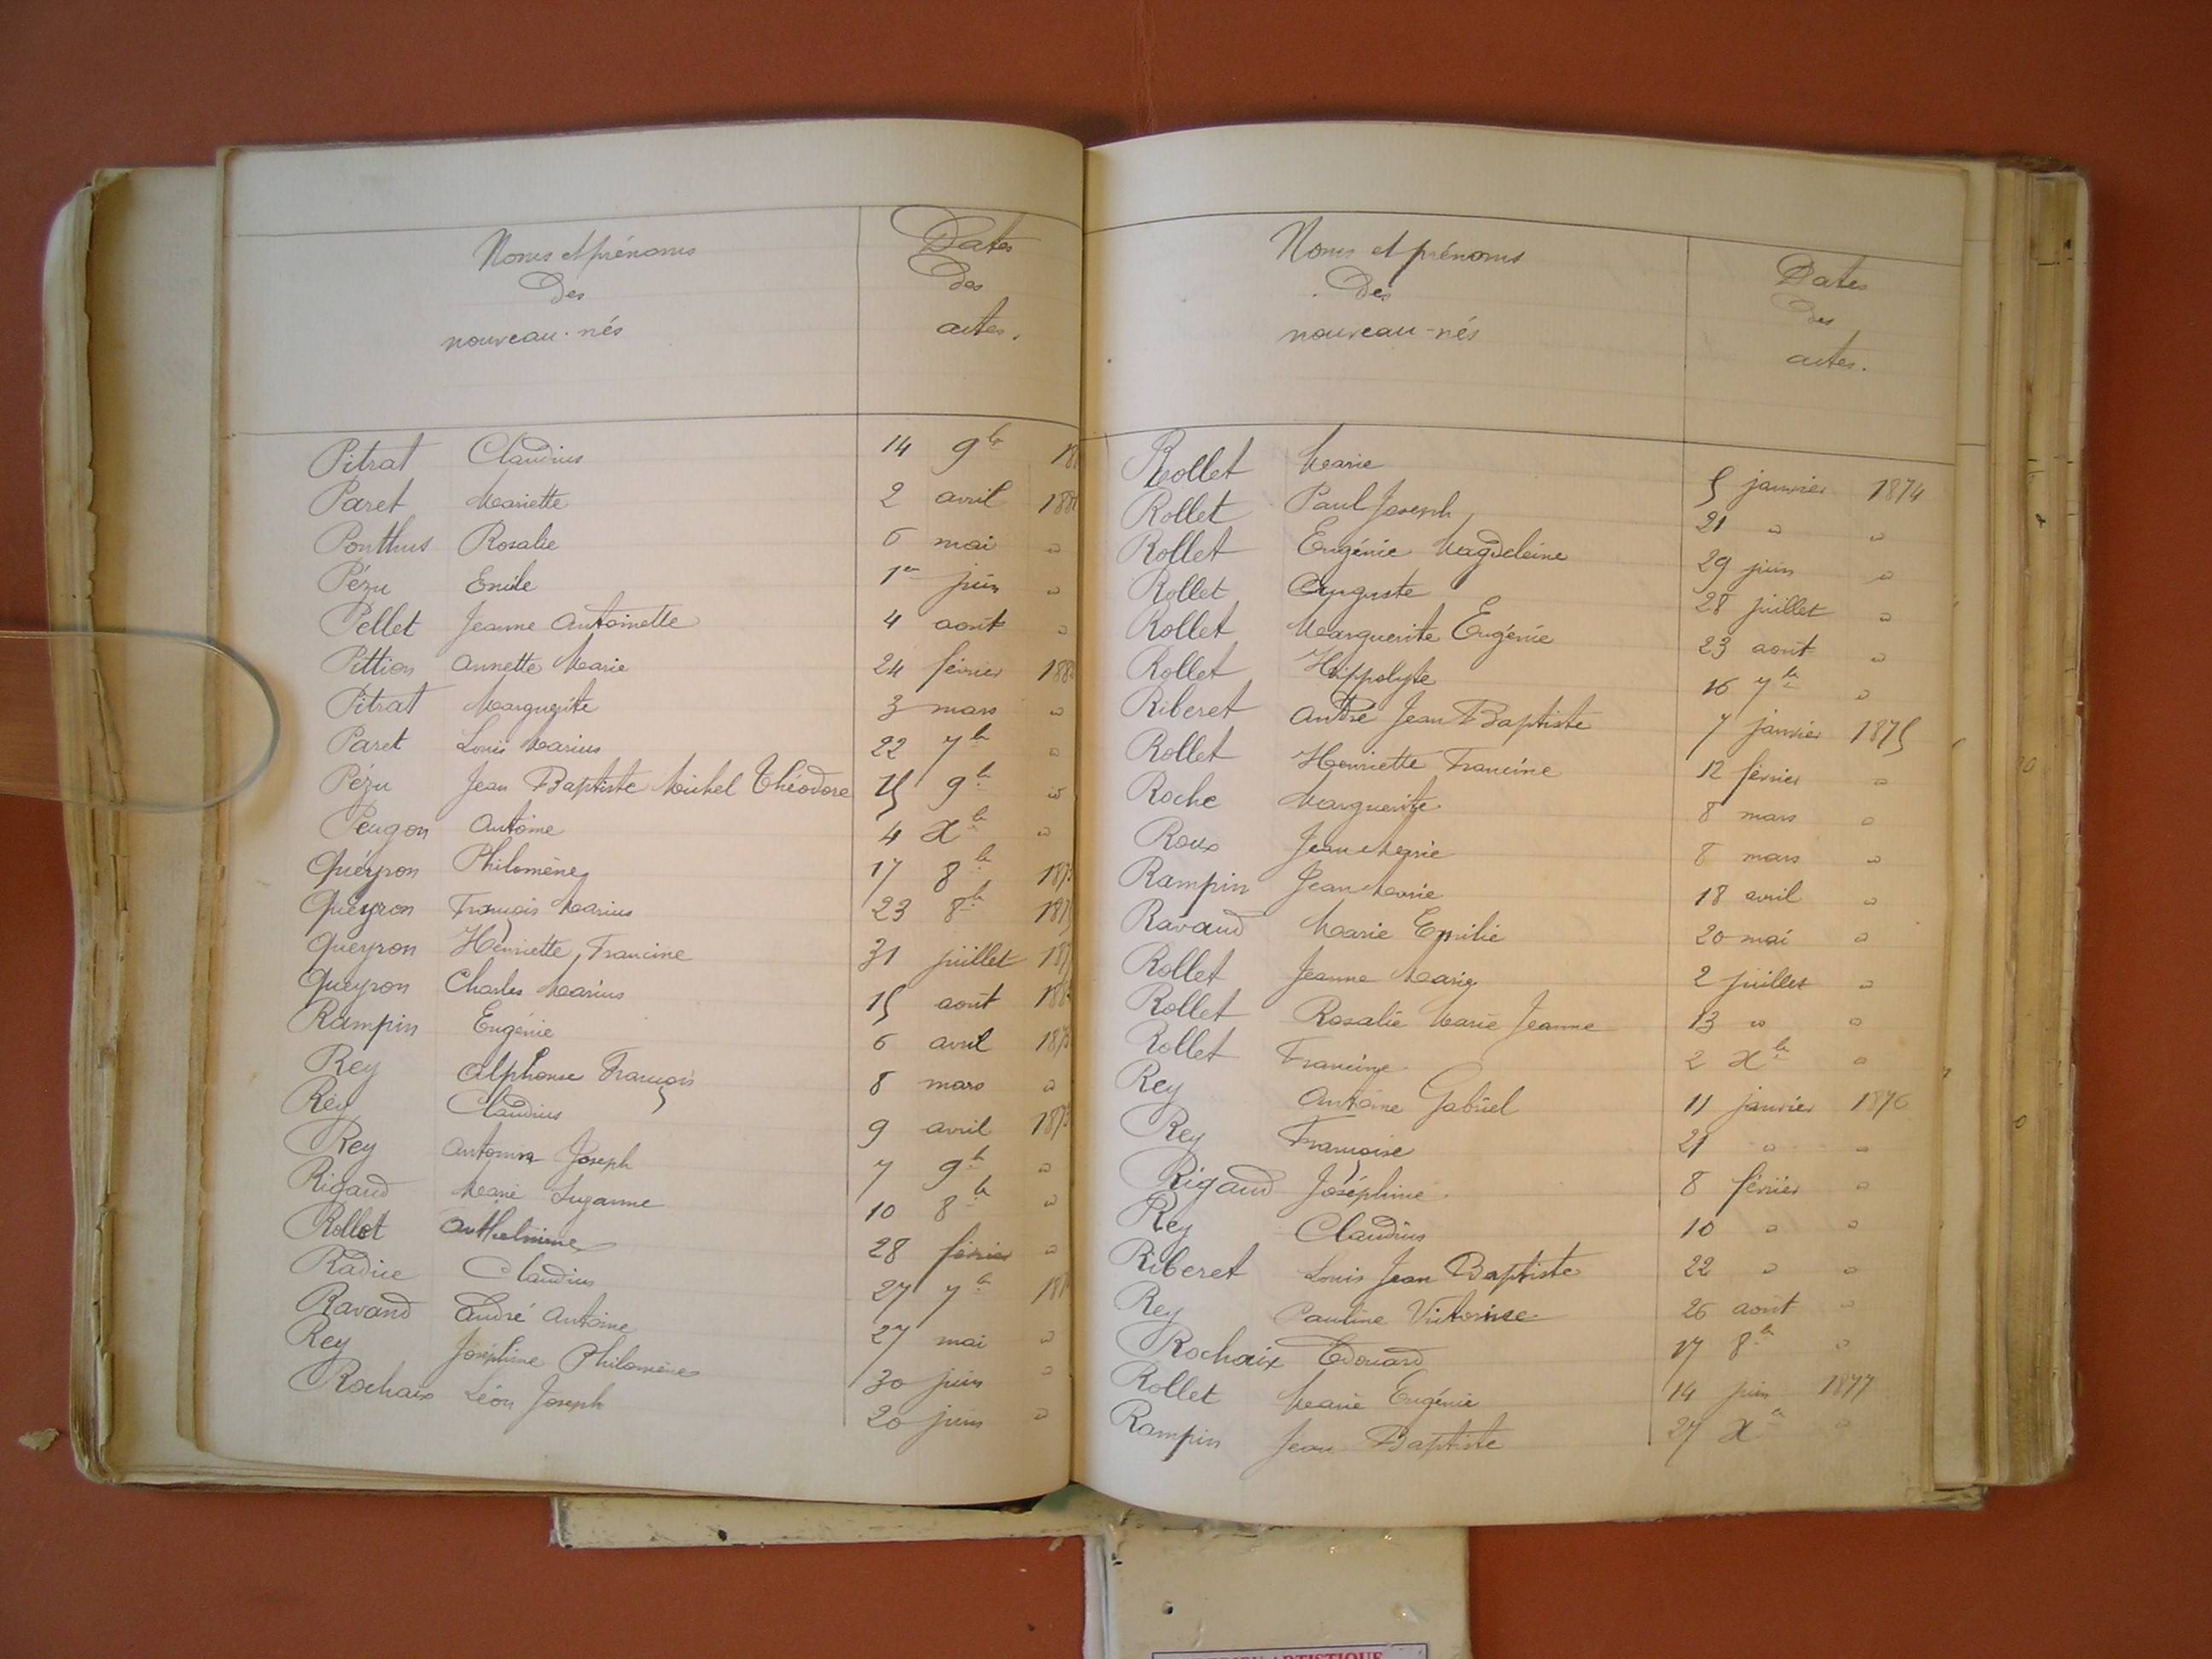 Noms et prénoms
des
nouveau-nés
Dates
des
actes.
Pitrat Claudius 14 9bre
Paret Mariette 2 avril
Ponthus Rosalie 6 mai "
Pézu Emile 1er juin "
Pellet Jeanne Antoinette 4 août "
Pittion Annette Marie 24 février
Pitrat Marguerite 3 mars "
Paret Louis Marius 22 7bre "
Pézu Jean Baptiste Michel Théodore 15 9bre "
Peugon Antoine 4 Xbre "
Quéyron Philomène 17 8bre
Quéyron François Marius 23 8bre
Queyron Henriette Francine 31 juillet
Queyron Charles Marius 15 août
Rampin Eugénie 6 avril
Rey Alphonse François 8 mars "
Rey Claudius 9 avril
Rey Antonin Joseph 7 9bre "
Rigaud Marie Suzanne 10 8bre "
Rollet Anthelmine 28 février "
Radice Claudius 27 7bre
Ravaud André Antoine 27 mai "
Rey Joséphine Philomène 30 juin "
Rochaix Léon Joseph 20 juin "
Noms et prénoms
des
nouveau-nés
Dates
des
actes.
Rollet Marie 5 janvier 1874
Rollet Paul Joseph 21 " "
Rollet Eugénie Magdeleine 29 juin "
Rollet Auguste 28 juillet "
Rollet Marguerite Eugénie 23 août "
Rollet Hippolyte 16 7bre "
Riberet André Jean Baptiste 7 janvier 1875
Rollet Henriette Francine 12 février "
Roche Marguerite 8 mars "
Roux Jean Marie 8 mars "
Rampin Jean Marie 18 avril "
Ravaud Marie Emilie 20 mai "
Rollet Jeanne Marie 2 juillet "
Rollet Rosalie Marie Jeanne 13 " "
Rollet Francine 2 Xbre "
Rey Antoine Gabriel 11 janvier 1876
Rey Françoise 21 " "
Rigaud Joséphine 8 février "
Rey Claudius 10 " "
Riberet Louis Jean Baptiste 22 " "
Rey Pauline Victorine 26 août "
Rochaix Edouard 17 8bre "
Rollet Marie Eugénie 14 juin 1877
Rampin Jean Baptiste 27 Xbre "